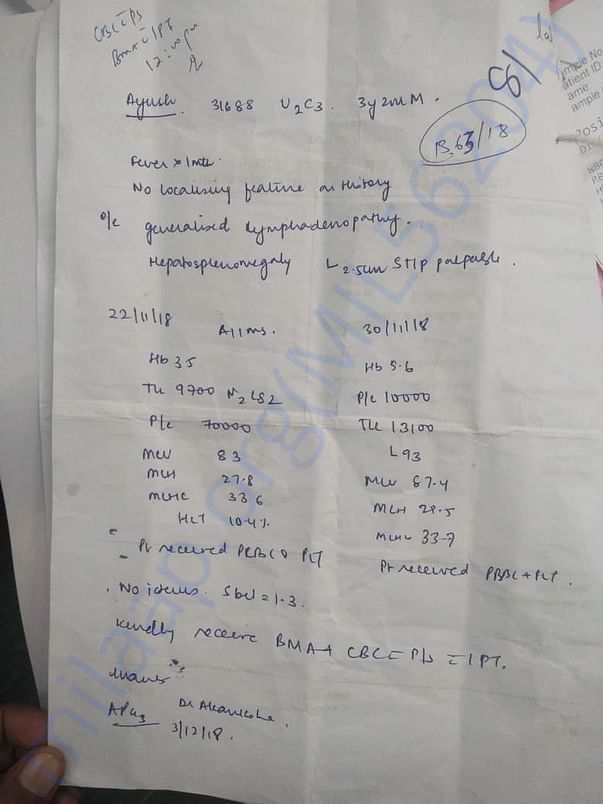 CBC c PS
BMA c IPT
12:00 pm
Ayush. 31688 U2C3. 3y 2m M.
B.63/18
Fever x 1 mth.
No localising feature on History
O/E generalised lymphadenopathy.
Hepatosplenomegaly L 2.5cm STIP palpable.
22/11/18 AIIMS. 30/11/18
Hb 3.5 Hb 5.6
TLC 9700 N2 L82 P/C 10000
P/C 70000 TLC 13100
MCV 83 L93
MCH 27.8 MCV 87.4
MCHC 33.6 MCH 29.5
HCT 10.4% MCHC 33.7
Pt received PRBC & PLT Pt received PRBC + PLT.
No icterus. S bil = 1.3.
Kindly receive BMA + CBC c P/S c IPT.
Thanks
3/12/18.
milaap.org(MIL56204)
ample No
atient ID
ame.
ample